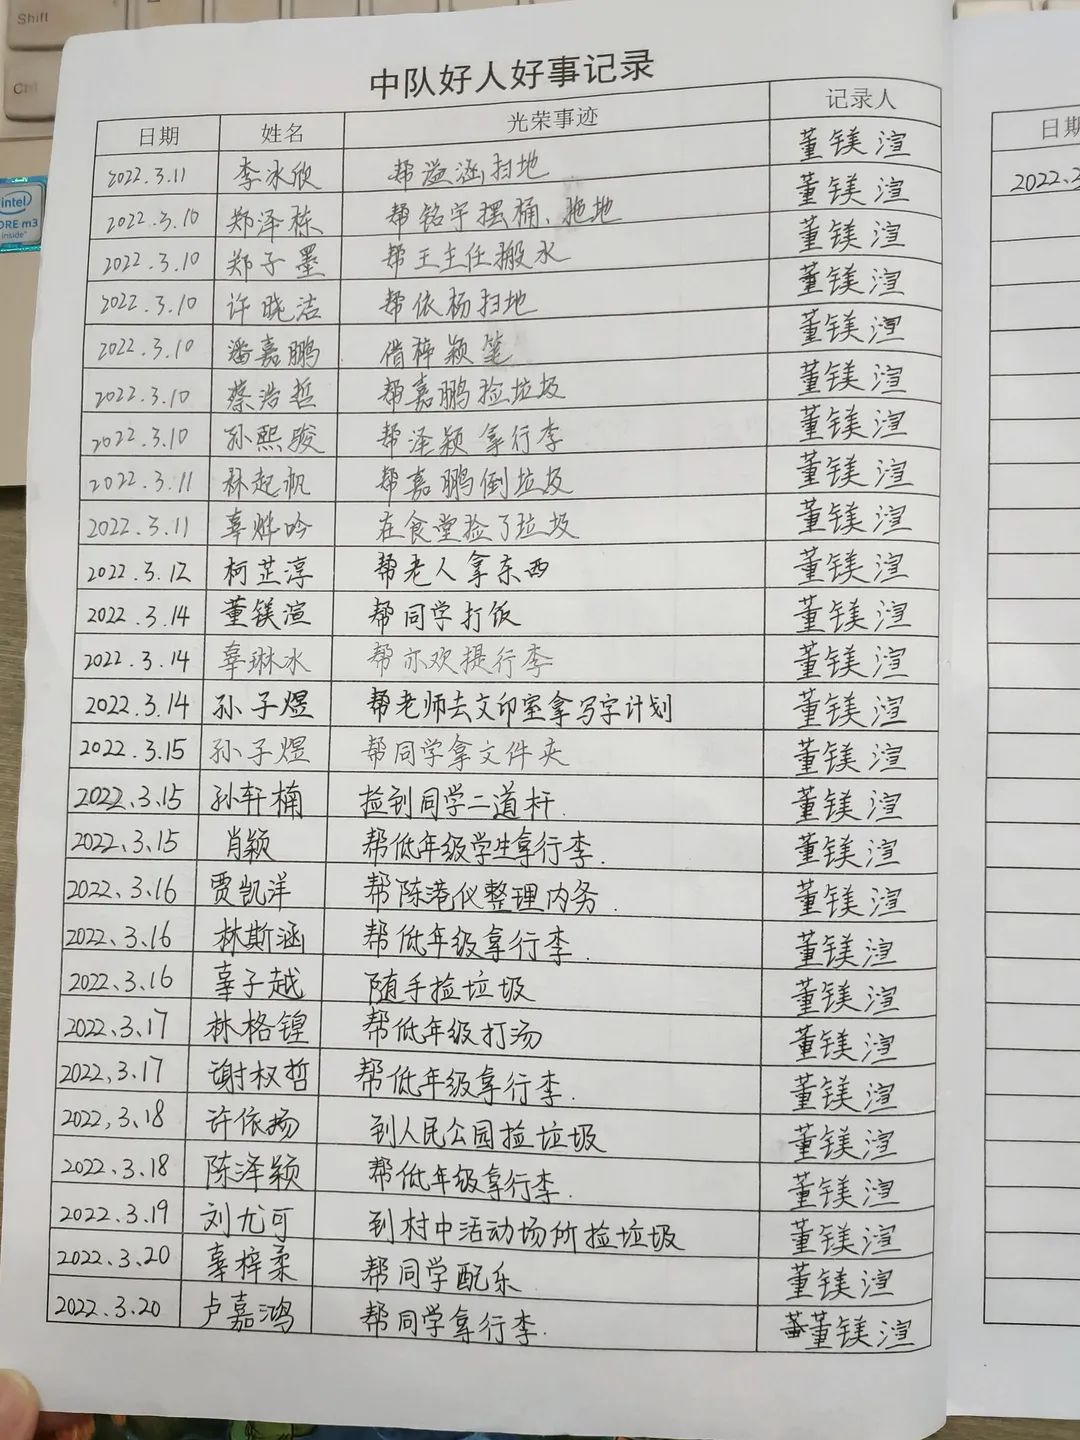 Shift
Ctrl
intel
CORE m3
inside
中队好人好事记录
日期 姓名 光荣事迹 记录人
2022.3.11 李冰欣 帮溢涵扫地 董镁渲
2022.3.10 郑泽栋 帮铭宇摆桶、拖地 董镁渲
2022.3.10 郑子墨 帮王主任搬水 董镁渲
2022.3.10 许晓洁 帮依杨扫地 董镁渲
2022.3.10 潘嘉鹏 借梓颖笔 董镁渲
2022.3.10 蔡浩哲 帮嘉鹏捡垃圾 董镁渲
2022.3.10 孙熙骏 帮泽颖拿行李 董镁渲
2022.3.11 林起帆 帮嘉鹏倒垃圾 董镁渲
2022.3.11 辜烨吟 在食堂捡了垃圾 董镁渲
2022.3.12 柯芷淳 帮老人拿东西 董镁渲
2022.3.14 董镁渲 帮同学打饭 董镁渲
2022.3.14 辜琳冰 帮亦欢提行李 董镁渲
2022.3.14 孙子煜 帮老师去文印室拿写字计划 董镁渲
2022.3.15 孙子煜 帮同学拿文件夹 董镁渲
2022.3.15 孙轩楠 捡到同学二道杆. 董镁渲
2022.3.15 肖颖 帮低年级学生拿行李. 董镁渲
2022.3.16 贾凯洋 帮陈港仪整理内务. 董镁渲
2022.3.16 林斯涵 帮低年级拿行李. 董镁渲
2022.3.16 辜子越 随手捡垃圾 董镁渲
2022.3.17 林格锽 帮低年级打汤 董镁渲
2022.3.17 谢权哲 帮低年级拿行李. 董镁渲
2022.3.18 许依扬 到人民公园捡垃圾 董镁渲
2022.3.18 陈泽颖 帮低年级拿行李. 董镁渲
2022.3.19 刘尤可 到村中活动场所捡垃圾 董镁渲
2022.3.20 辜梓柔 帮同学配乐. 董镁渲
2022.3.20 卢嘉鸿 帮同学拿行李. 董镁渲
日期
2022.